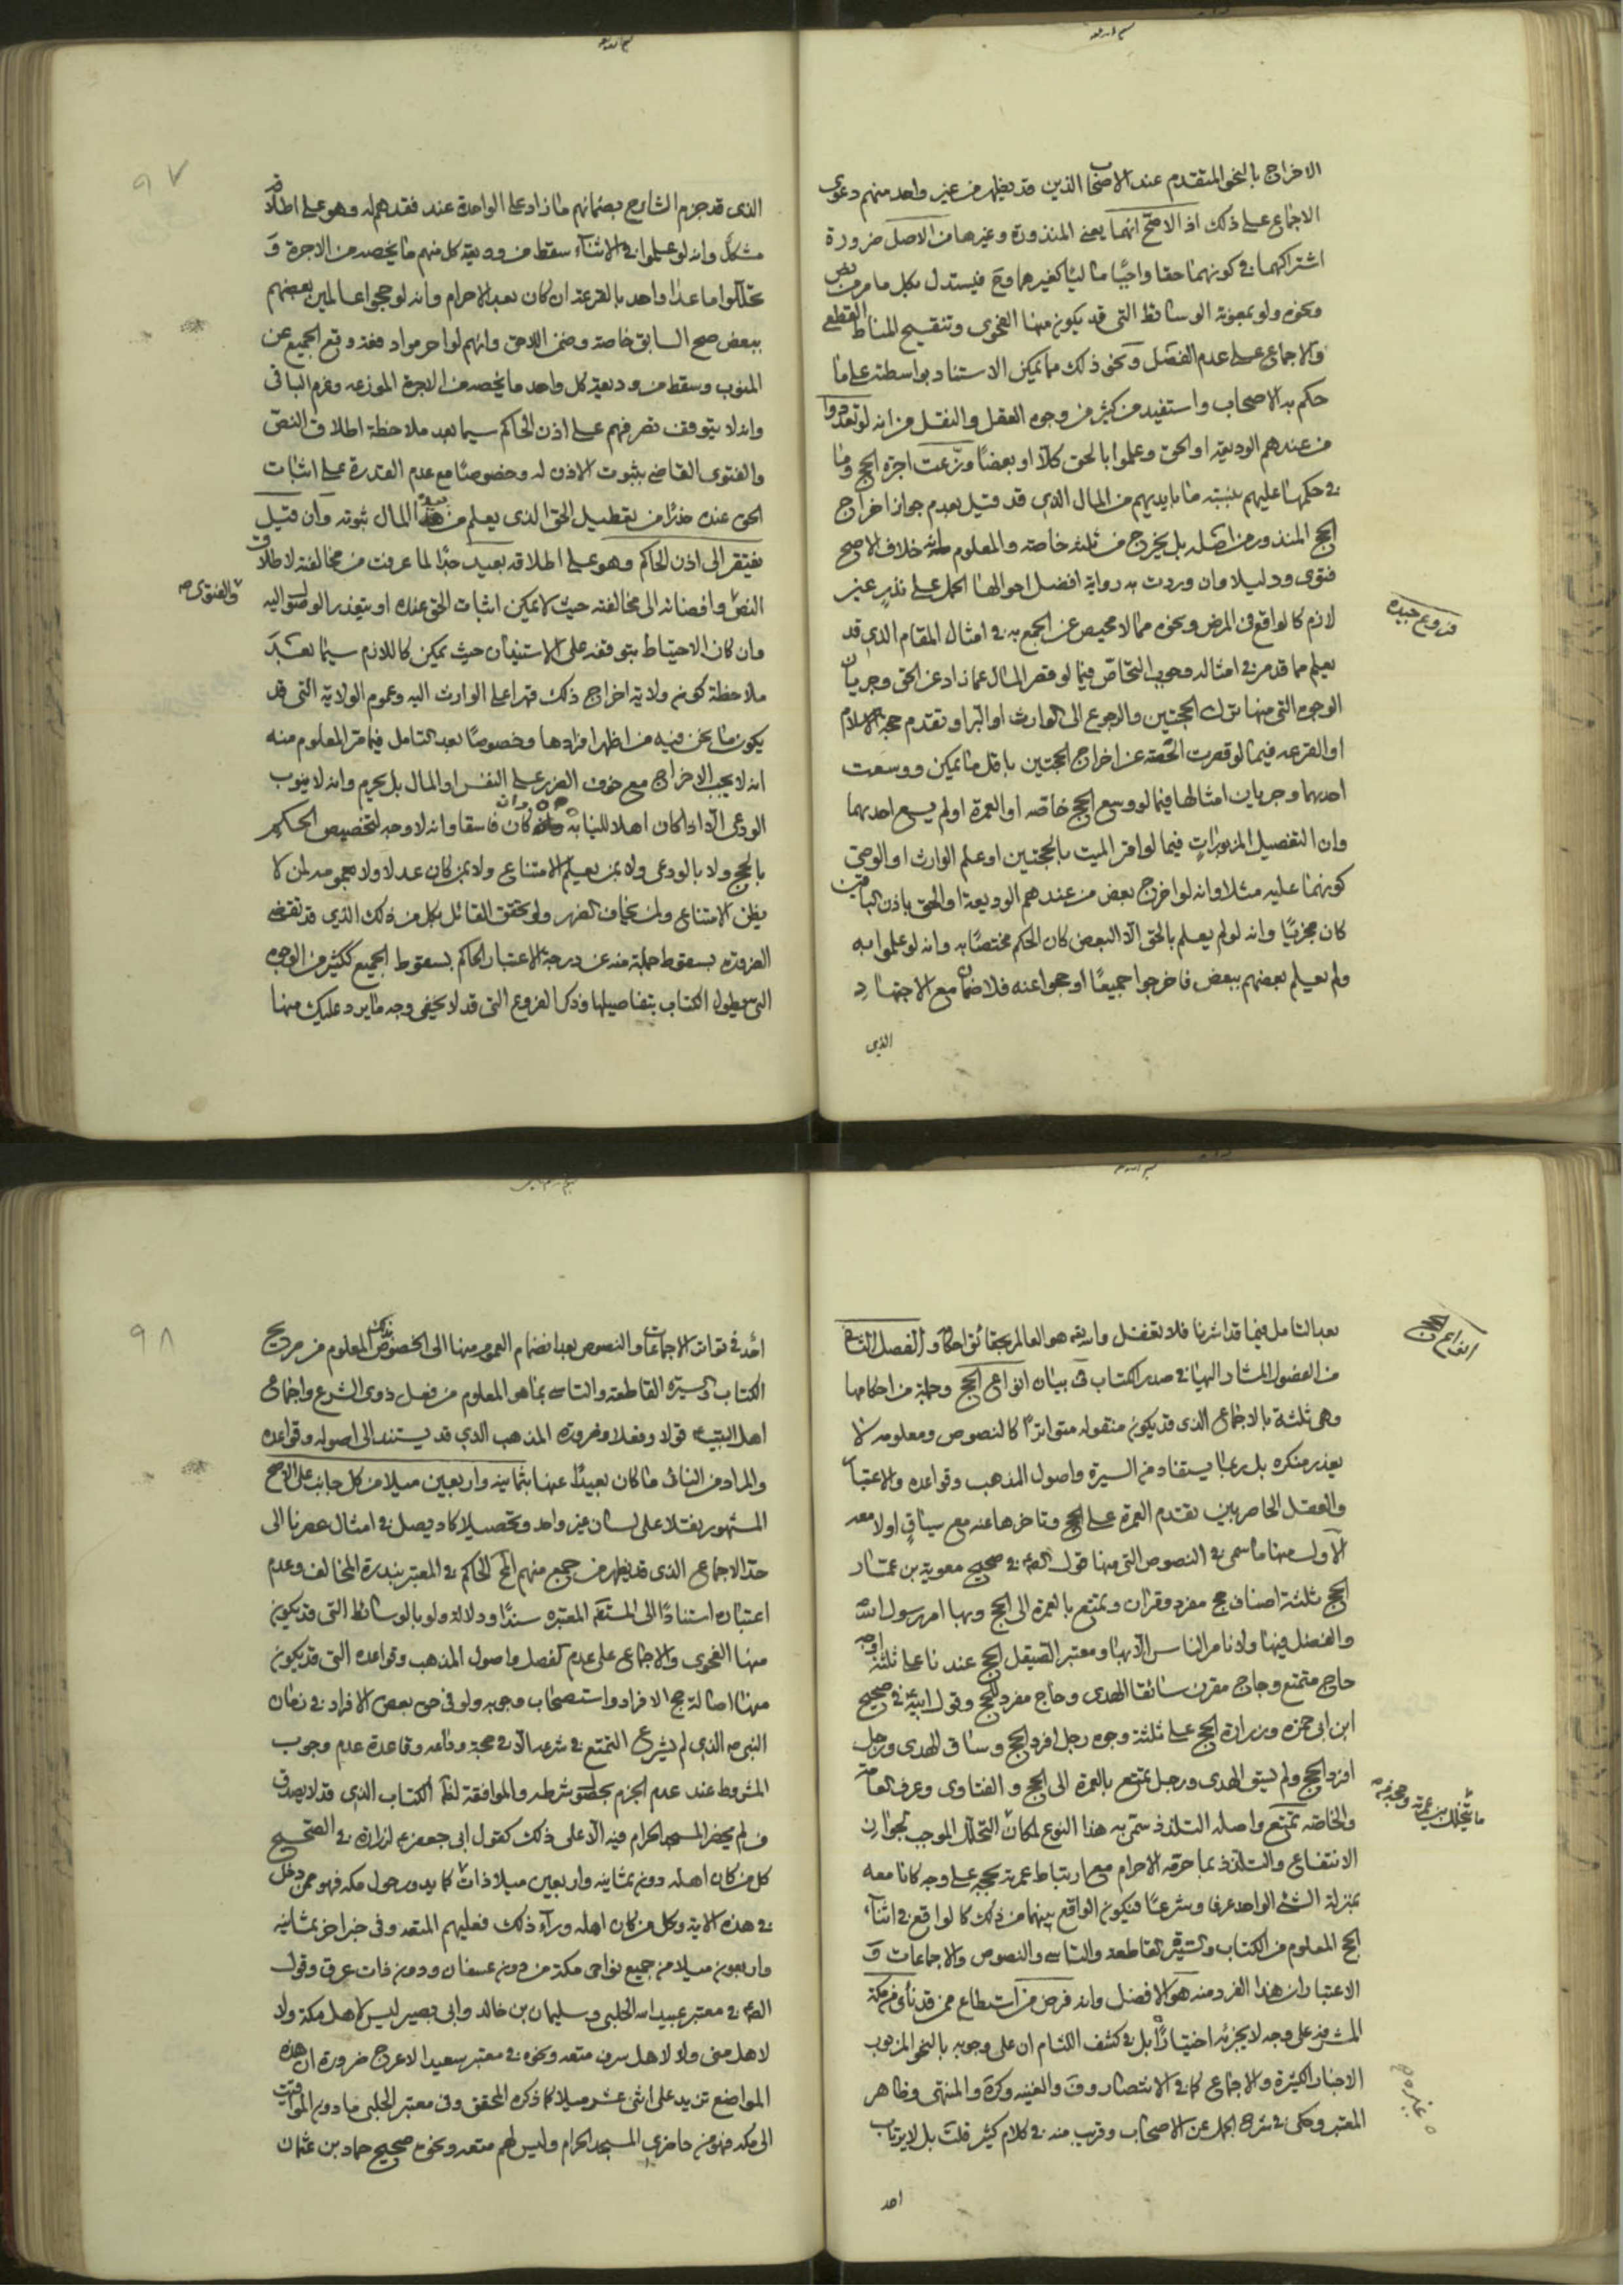 الاخراج بالنحو المتقدم عند الاصحاب الذين قد يظهر من غير واحد منهم دعوى
الاجماع على ذلك اذ الاصح انهما يعنى المنذورة وغيرها من الاصل ضرورة
اشتراكهما في كونهما حقا واجبا ماليا كغيرهما وح فيستدل بكل ما مر من نص
ونحوه ولو بمعونة الوسائط التى قد يكون منها الفحوى وتنقيح المناط القطعى
والاجماع على عدم الفصل ونحو ذلك مما يمكن الاستناد بواسطته على ما
حكم به الاصحاب واستفيد من كثير من وجوه العقل والنقل من انه لو تعددوا
من عندهم الوديعة او الحق وعلموا بالحق كلا او بعضا وزعت اجرة الحج وما
في حكمها عليهم بنسبة ما بايديهم من المال الذى قد قيل بعدم جواز اخراج
الحج المنذور من اصله بل يخرج من ثلثه خاصة والمعلوم انه خلاف الاصح
فتوى ودليلا وان وردت به رواية افضل احوالها الحمل على نذر غير
لازم كالواقع في المرض ونحوه مما لا محيص عن الجمع به في امثال المقام الذى قد
يعلم مما قدمر في امثاله وجوب التحاص فيما لو قصر المال عما زاد عن الحق وجريان
الوجوه التى منها ترك الحجتين والرجوع الى الوارث او البر او تقدم حجة الاسلام
او القرعه فيما لو قصرت الحصة عن اخراج الحجتين باقل ما يمكن ووسعت
احدهما وجريان امثالها فيما لو وسع الحج خاصة او العمرة او لم يسع احدهما
وان التفصيل المزبور ات فيما لو اقر الميت بالحجتين او علم الوارث او الوصى
كونهما عليه مثلا وانه لو اخرج بعض من عندهم الوديعة او الحق باذن الباقين
كان مجزيا وانه لو لم يعلم بالحق الا البعض كان الحكم مختصا به وانه لو علموا به
ولم يعلم بعضهم ببعض فاخرجوا جميعا او حجوا عنه فلا ضمان مع الاجتهاد
الذى
فروع جيده
٩٧
الذى قد جزم الشارح بضمانهم ما زاد على الواحدة عند فقدهم له وهو على اطلاقه
مشكل وانه لو علموا في الاثناء سقط من وديعة كل منهم ما يخصه من الاجرة و
تحللوا ما عدا واحد بالقرعة ان كان بعد الاحرام وانه لو حجوا عالمين بعضهم
ببعض صح السابق خاصة وضمن اللاحق وانهم لو احرموا دفعة وقع الجميع عن
المنوب وسقط من وديعة كل واحد ما يخصه من الاجرة الموزعه وغرم الباقى
وانه لا يتوقف تصرفهم على اذن الحاكم سيما بعد ملاحظة اطلاق النص
والفتوى القاضى بثبوت الاذن له وخصوصا مع عدم القدرة على اثبات
الحق عنده حذرا من تعطيل الحق الذى يعلم من المال ثبوته وان قيل
يفتقر الى اذن الحاكم وهو على اطلاقه بعيد جدا لما عرفت من مخالفته لاطلاق
النص وافضائه الى مخالفته حيث لا يمكن اثبات الحق عنده او يتعذر الوصول اليه
وان كان الاحتياط بتوقفه على الاستيذان حيث يمكن كاللازم سيما بعد
ملاحظة كون ولاية اخراج ذلك قهرا على الوارث اليه وعموم الولاية التى قد
يكون ما نحن فيه من اظهر افرادها وخصوصا بعد التامل فيما مر المعلوم منه
انه لا يجب الاخراج مع خوف الضرر على النفس او المال بل يحرم وانه لا ينوب
الودعى الا اذا كان اهلا للنيابة وان كان فاسقا وانه لا وجه لتخصيص الحكم
بالحج ولا بالودعى ولا بمن يعلم الامتناع ولا بمن كان عدلا ولا عمومه لمن لا
يظن الامتناع ولمن يخاف الضرر ولو تحقق القائل بكل من ذلك الذى قد تقضى
الضرورة بسقوط جملة منه عن درجة الاعتبار الحاكم بسقوط الجميع ككثير من الوجوه
التى يطول الكتاب بتفاصيلها وذكر الفروع التى قد لا يخفى وجه ما يرد عليك منها
والفتوى ص
بعد التامل فيما قد اشرنا فلا تغفل والله هو العالم بحقائق احكامه والفصل الثانى
من الفصول المشار اليها في صدر الكتاب في بيان انواع الحج وجملة من احكامها
وهى ثلثة بالاجماع الذى قد يكون منقوله متواترا كالنصوص ومعلومه لا
يعذر منكره بل ربما يستفاد من السيرة واصول المذهب وقواعده والاعتبار
والعقل الحاصر بين تقدم العمرة على الحج وتاخرها عنه مع سياق او لا معه
الاول منها ما سمى في النصوص التى منها قول الصا في صحيح معوية بن عمار
الحج ثلثة اصناف حج مفرد وقران وتمتع بالعمرة الى الحج وبها امر رسول الله
والفضل فيها ولا نامر الناس الا بها ومعتبر الصيقل الحج عندنا على ثلثة اوجه
حاج متمتع وحاج مقرن سائق الهدى وحاج مفرد للحج وقول ابيه في صحيح
ابن ابى حمزه وزرارة الحج على ثلثة وجوه رجل افرد الحج وساق الهدى ورجل
افرد الحج ولم يسق الهدى ورجل تمتع بالعمرة الى الحج و الفتاوى وعرف العامة
والخاصة تمتع واصله التلذذ سمى به هذا النوع لمكان التحلل الموجب لجواز
الانتفاع والتلذذ بما حرمه الاحرام مع ارتباط عمرته بحجه على وجه كانا معه
بمنزلة الشئ الواحد عرفا وشرعا فيكون الواقع بينهما من ذلك كالواقع في اثناء
الحج المعلوم من الكتاب والسيرة القاطعه والتاسى والنصوص والاجماعات و
الاعتبار ان هذا الفرد منه هو الافضل وانه فرض من استطاع ممن قد نأى من مكة
المشرفة على وجه لا يجزئه اختيارا بل في كشف اللثام ان على وجوبه بالنحو المزبور
الاخبار الكثيرة والاجماع كما في الانتصار وف والغنيه وكرة والمنتهى وظاهر
المعتبر وحكى في شرح الجمل عن الاصحاب وقريب منه في كلام كثير قلت بل لا يرتاب
احد
انواع الحج
ما يتخلل بين عمرته وحجه من
٩٨
احد في تواتر الاجماعات والنصوص بعد انضمام العموم منها الى الخصوص المعلوم من صريح
الكتاب والسيرة القاطعة والتاسى بما هو المعلوم من فعل ذوى الشرع واجماع
اهل البيت قولا وفعلا وضرورة المذهب الذى قد يستند الى اصوله وقواعده
والمراد من النائى ما كان بعيدا عنها بثمانية واربعين ميلا من كل جانب على الاصح
المشهور نقلا على لسان غير واحد وتحصيلا كاد يصل في امثال عصرنا الى
حد الاجماع الذى قد يظهر من جمع منهم الحاكم في المعتبر بندرة المخالف وعدم
اعتباره استنادا الى المستفيضه المعتبره سندا ودلالة ولو بالوسائط التى قد يكون
منها الفحوى والاجماع على عدم الفصل واصول المذهب وقواعده التى قد يكون
منها اصالة حج الافراد واستصحاب وجوبه ولو في حق بعض الافراد في زمان
النبى ص الذى لم يشرع التمتع في شرعه الا في حجة وداعه وقاعدة عدم وجوب
المشروط عند عدم الجزم بحصول شرطه والموافقة لظا الكتاب الذى قد لا يصدق
من لم يحضر المسجد الحرام فيه الا على ذلك كقول ابى جعفر ع لزرارة في الصحيح
كل من كان اهله دون ثمانية واربعين ميلا ذات كما يدور حول مكه فهو ممن دخل
في هذه الاية وكل من كان اهله وراء ذلك فعليهم المتعه وفى خبر اخر ثمانية
واربعون ميلا من جميع نواحى مكة من دون عسفان ودون ذات عرق وقول
الصا في معتبر عبيدالله الحلبى وسليمان بن خالد وابى بصير ليس لاهل مكة ولا
لاهل منى ولا لاهل سرف متعه ونحوه في معتبر سعيد الاعرج ضرورة ان هذه
المواضع تزيد على اثنى عشر ميلا كما ذكره المحقق وفى معتبر الحلبى ما دون المواقيت
الى مكه فهو من حاضرى المسجد الحرام وليس لهم متعه ونحوه صحيح حماد بن عثمان